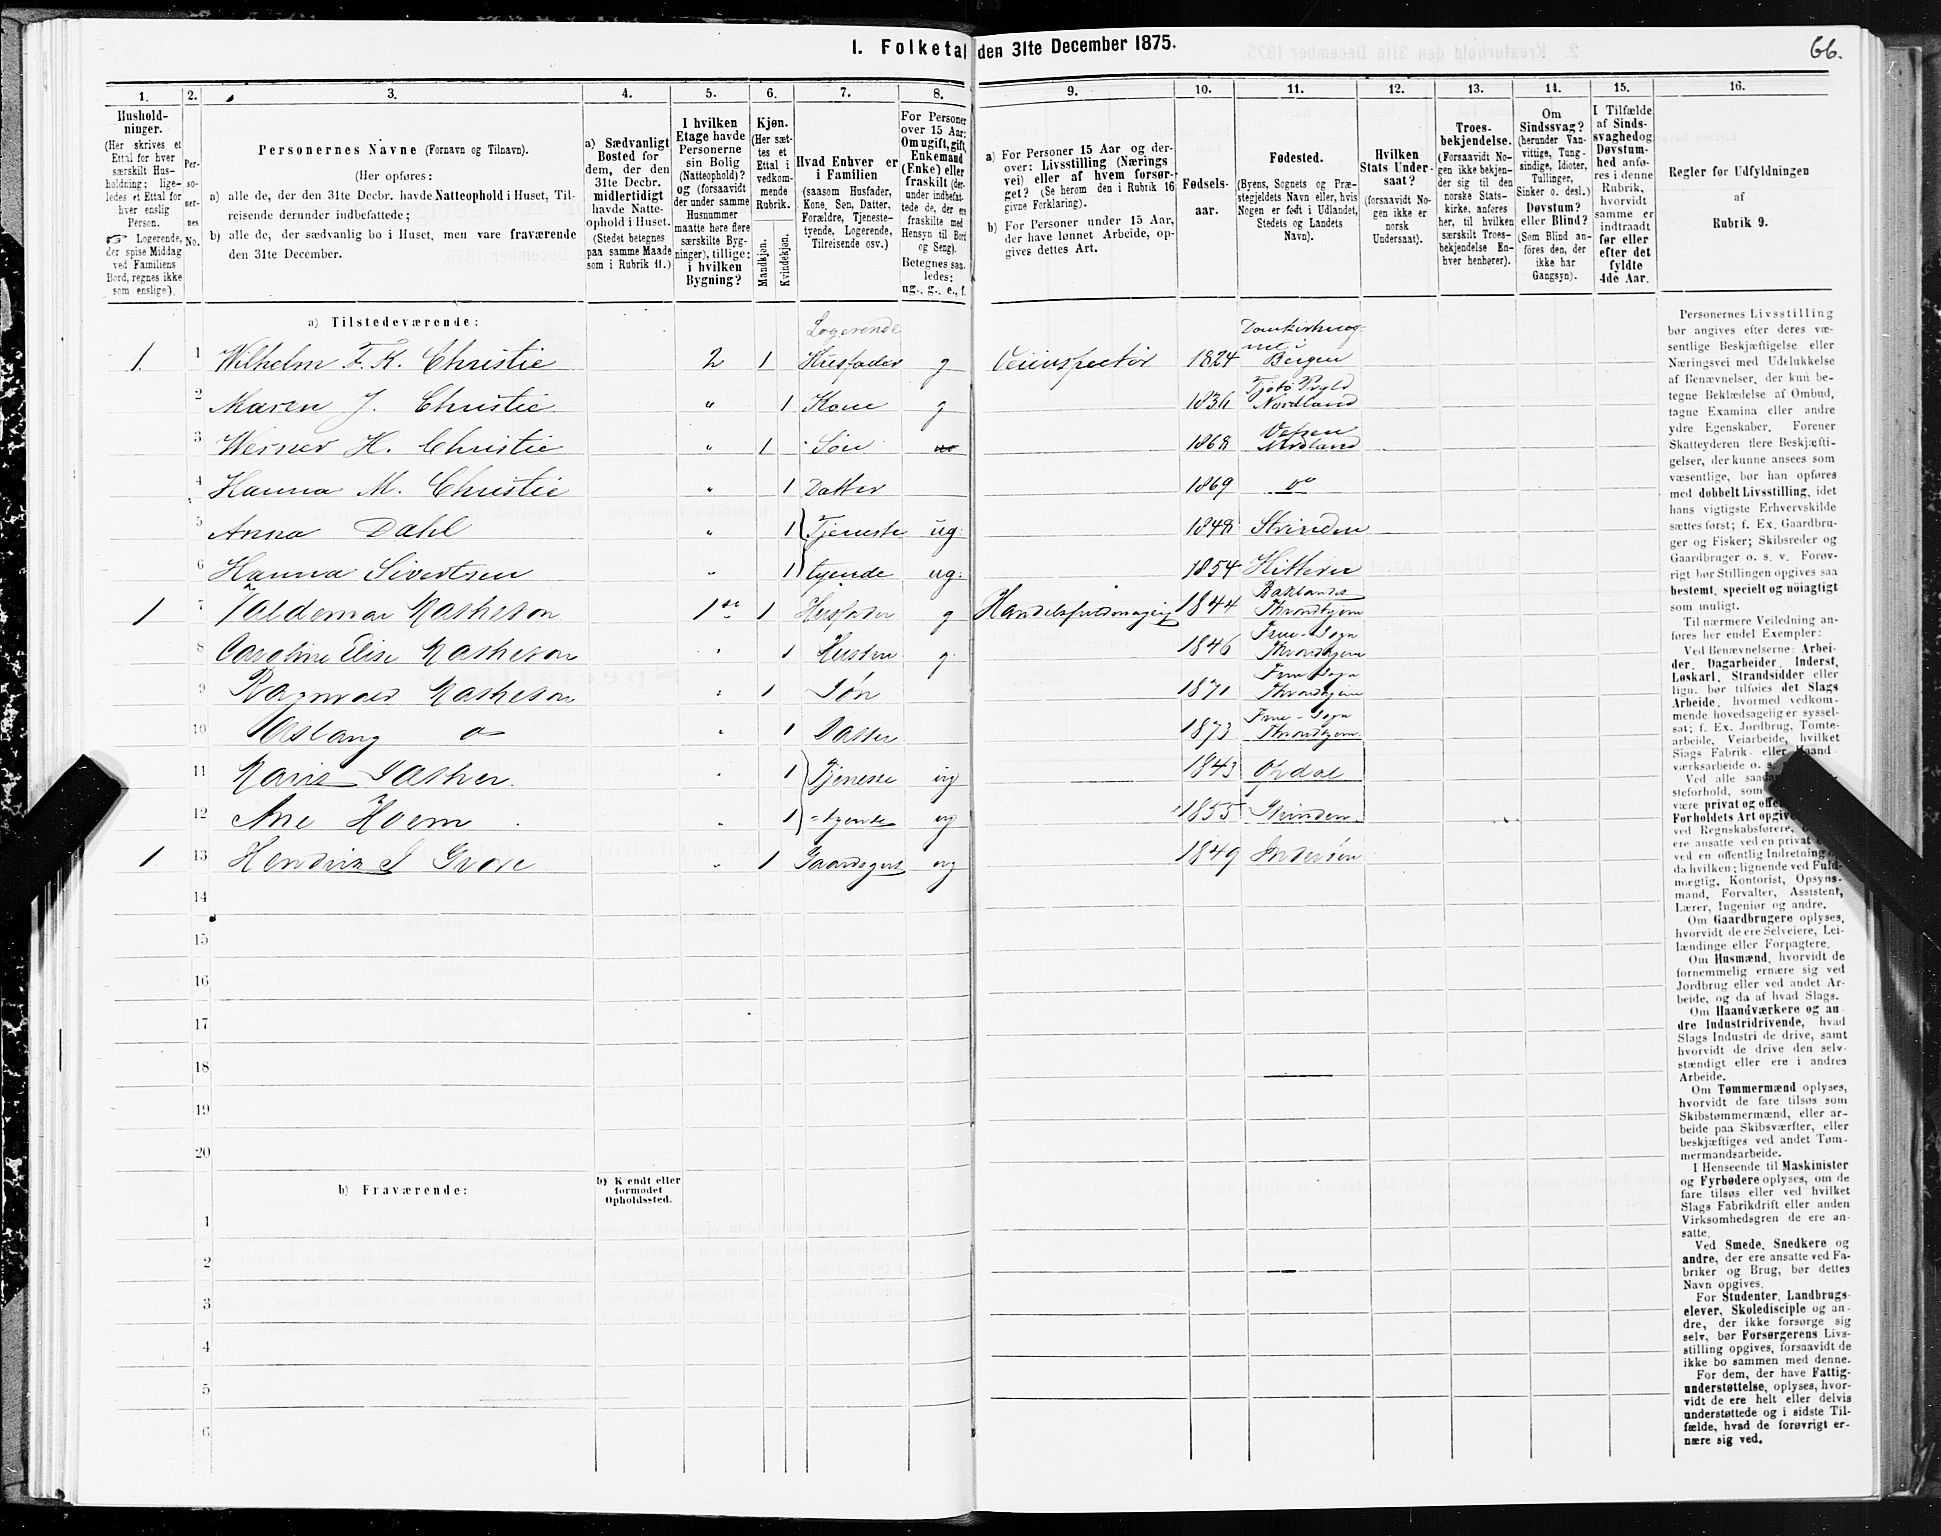 1. Folketal den 31te December 1875.
66.
1. 2. 3. 4. 5. 6. 7. 8. 9. 10. 11. 12. 13. 14. 15. 16.
Hushold-
ninger.
(Her skrives et
Ettal for hver
særskilt Hus-
holdning; lige-
ledes et Ettal for
hver enslig
Person.
☞ Logerende,
der spise Middag
ved Familiens
Bord, regnes ikke
som enslige).
Per-
so-
ner-
nes
No.
Personernes Navne (Fornavn og Tilnavn).
(Her opføres:
a) alle de, der den 31te Decbr. havde Natteophold i Huset, Til-
reisende derunder indbefattede;
b) alle de, der sædvanlig bo i Huset, men vare fraværende
den 31te December.
a) Sædvanligt
Bosted for
dem, der den
31te Decbr.
midlertidigt
havde Natte-
ophold i Huset.
(Stedet betegnes
paa samme Maade
som i Rubrik 11.)
I hvilken
Etage havde
Personerne
sin Bolig
(Natteophold)?
og (forsaavidt
der under samme
Husnummer
maatte høre flere
særskilte Byg-
ninger), tillige:
i hvilken
Bygning?
Kjøn.
(Her sæt-
tes et
Ettal i
vedkom-
mende
Rubrik.
Mandkjøn.
Kvindekjøn.
Hvad Enhver er
i Familien
(saasom Husfader,
Kone, Søn, Datter,
Forældre, Tjeneste-
tyende, Logerende,
Tilreisende osv.)
For Personer
over 15 Aar:
Om ugift, gift,
Enkemand
(Enke) eller
fraskilt (der-
under indbefat-
tede de, der ere
fraskilte med
Hensyn til Bord
og Seng).
Betegnes saa-
ledes:
ug., g., e., f.
a) For Personer 15 Aar og der-
over: Livsstilling (Nærings
vei) eller af hvem forsør-
get? (Se herom den i Rubrik 16
givne Forklaring).
b) For Personer under 15 Aar,
der have lønnet Arbeide, op-
gives dettes Art.
Fødsels-
aar.
Fødested.
(Byens, Sognets og Præ-
stegjeldets Navn eller, hvis
Nogen er født i Udlandet,
Stedets og Landets
Navn).
Hvilken
Stats Under-
saat?
(forsaavidt No-
gen ikke er
norsk
Undersaat).
Troes-
bekjendelse.
(Forsaavidt No-
gen ikke bekjen-
der sig til den
norske Stats-
kirke, anføres
her, til hvilken
særskilt Troes-
bekjendelse En-
hver henhører).
Om
Sindssvag?
(herunder Van-
vittige, Tung-
sindige, Idioter,
Tullinger,
Sinker o. desl.)
Døvstum?
eller Blind?
(Som Blind an-
føres den, der
ikke har
Gangsyn).
I Tilfælde
af Sinds-
svaghed og
Døvstum-
hed anfø-
res i denne
Rubrik,
hvorvidt
samme er
indtraadt
før eller
efter det
fyldte
4de Aar.
Regler for Udfyldningen
af
Rubrik 9.
a) Tilstedeværende:
1. 1 Wilhelm F. K. Christie 2 1 Logerende Husfader g Veiinspectør 1824 Domkirkesognet i Bergen
2 Maren J. Christie " 1 Kone g 1836 Tjøtø Prgld Nordland
3 Werner H. Christie " 1 Søn 1868 Vefsen Nordland
4 Hanna M. Christie " 1 Datter 1869 do
5 Anna Dahl " 1 Tjeneste ug. 1848 Strinden
6 Hanna Sivertsen " 1 tyende ug. 1854 Hitteren
1 7 Valdemar Matheson 1ste 1 Husfader g 1844 Baklandet Throndhjem
8 Caroline Elise Matheson " 1 Hustru g 1846 Frue-Sogn Throndhjem
9 Ragnvald Matheson " 1 Søn 1871 Frue Sogn Throndhjem
10 Aslaug do " 1 Datter 1873 Frue-Sogn Throndhjem
11 Marie Sæther. " 1 Tjeneste ug 1843 Opdal
12 Ane Hoem " 1 -tyende ug 1855 Strinden
1 13 " 1 Gaardsgut ug 1849 Inderøen
14
15
16
17
18
19
20
b) Fraværende:
b) Kendt eller
formodet
Opholdssted.
1
2
3
4
5
6
Personernes Livsstilling
bør angives efter deres væ-
sentlige Beskjæftigelse eller
Næringsvei med Udelukkelse
af Benævnelser, der kun be-
tegne Beklædelse af Ombud,
tagne Examina eller andre
ydre Egenskaber. Forener
Skatteyderen flere Beskjæfti-
gelser, der kunne ansees som
væsentlige, bør han opføres
med dobbelt Livsstilling, idet
hans vigtigste Erhvervskilde
sættes først; f. Ex. Gaardbru-
ger og Fisker; Skibsreder og
Gaardbruger o. s. v. Forøv-
rigt bør Stillingen opgives saa
bestemt, specielt og nøiagtigt
som muligt.
Til nærmere Veiledning an-
føres her endel Exempler:
Ved Benævnelserne: Arbei-
der, Dagarbeider, Inderst,
Løskarl, Strandsidder eller
lign. bør tilføies det Slags
Arbeide, hvormed vedkom-
mende hovedsagelig er syssel-
sat; f. Ex. Jordbrug, Tømte-
arbeide, Veiarbeide, hvilket
Slags Fabrik- eller Haand-
værksarbeide o. s.
Ved alle saada
steforhold, som
være privat og offe
Forholdets Art opgive
ved Regnskabsførere,
ere ansatte ved en privat e
ved en offentlig Indretning o
da hvilken; lignende ved Fuld-
mægtig, Kontorist, Opsyns-
mand, Forvalter, Assistent,
Lærer, Ingeniør og andre.
Om Gaardbrugere oplyses,
hvorvidt de ere Selveiere, Lei-
lændinge eller Forpagtere.
Om Husmænd, hvorvidt de
fornemmelig ernære sig ved
Jordbrug eller ved andet Ar-
beide, og da af hvad Slags.
Om Haandværkere og an-
dre Industridrivende, hvad
Slags Industri de drive, samt
hvorvidt de drive den selv-
stændigt eller ere i andres
Arbeide.
Om Tømmermænd oplyses,
hvorvidt de fare tilsøs som
Skibstømmermænd, eller ar-
beide paa Skibsværfter, eller
beskjæftiges ved andet Tøm-
mermandsarbeide.
I Henseende til Maskinister
og Fyrbødere oplyses, om de
fare tilsøs eller ved hvilket
Slags Fabrikdrift eller anden
Virksomhedsgren de ere an-
satte.
Ved Smede, Snedkere og
andre, der ere ansatte ved Fa-
briker og Brug, bør dettes
Navn opgives.
For Studenter, Landbrugs-
elever, Skoledisciple og an-
dre, der ikke forsørge sig
selv, bør Forsørgerens Livs-
stilling opgives, forsaavidt de
ikke bo sammen med denne.
For dem, der have Fattig-
understøttelse, oplyses, hvor-
vidt de ere helt eller delvis
understøttede og i sidste Til-
fælde, hvad de forøvrigt er-
nære sig ved.